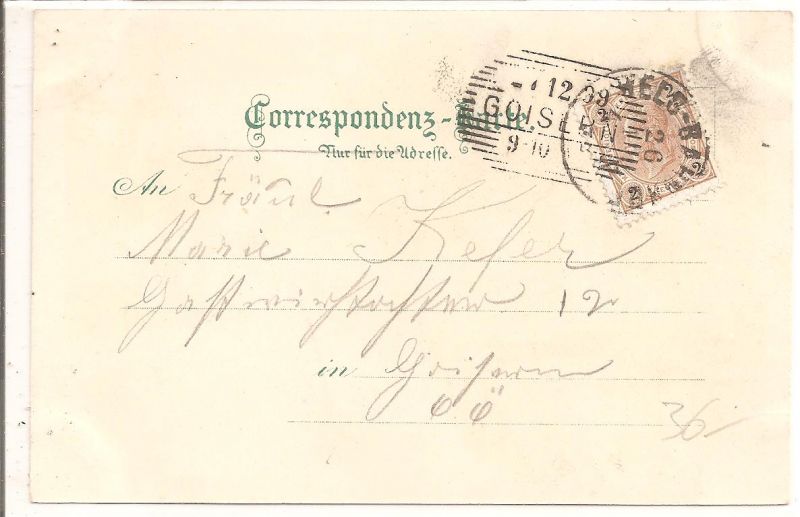 Correspondenz-Karte.
Nur für die Adresse.
12 99
GOISERN
9-10
26
2
2
An Fräul.
Marie Kefer
Gastwirthstochter
in Goisern
OÖ
36